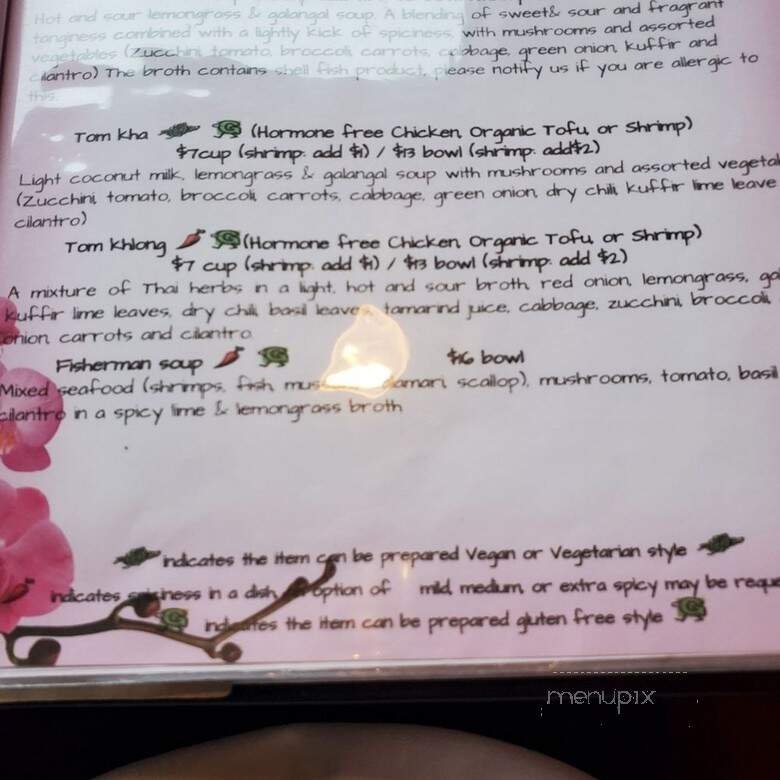 Hot and sour lemongrass & galangal soup. A blending of sweet& sour and fragrant
tanginess combined with a lightly kick of spiciness, with mushrooms and assorted
vegetables (Zucchini, tomato, broccoli, carrots, cabbage, green onion, kuffir and
cilantro) The broth contains shell fish product, please notify us if you are allergic to
this.
Tom kha (Hormone free Chicken, Organic Tofu, or Shrimp)
$7cup (shrimp: add $1) / $13 bowl (shrimp: add$2)
Light coconut milk, lemongrass & galangal soup with mushrooms and assorted vegetal
(Zucchini, tomato, broccoli, carrots, cabbage, green onion, dry chili, kuffir lime leave
cilantro)
Tom Khlong (Hormone free Chicken, Organic Tofu, or Shrimp)
$7 cup (shrimp: add $1) / $13 bowl (shrimp: add $2)
A mixture of Thai herbs in a light, hot and sour broth, red onion, lemongrass, ga
kuffir lime leaves, dry chili, basil leaves, tamarind juice, cabbage, zucchini, broccoli,
onion, carrots and cilantro
Fisherman soup $16 bowl
Mixed seafood (shrimps, fish, mus lamari, scallop), mushrooms, tomato, basil
cilantro in a spicy lime & lemongrass broth
indicates the item can be prepared Vegan or Vegetarian style
indicates spiciness in a dish, option of mild, medium, or extra spicy may be reque
indicates the item can be prepared gluten free style
menupix